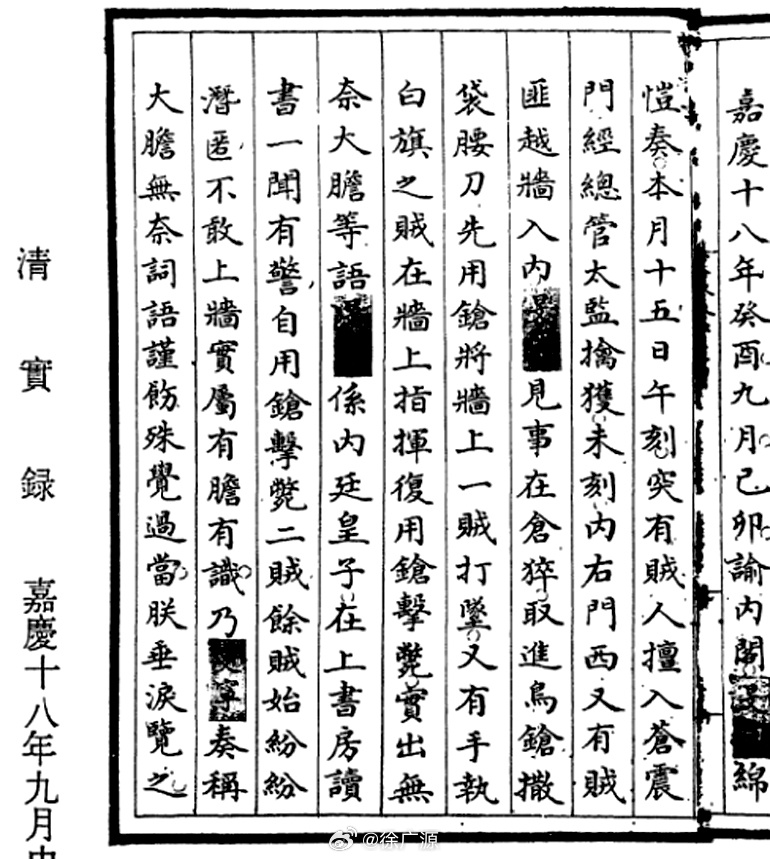 嘉慶十八年癸酉九月己卯諭內閣綿
愷奏本月十五日午刻突有賊人擅入蒼震
門經總管太監擒獲未刻內右門西又有賊
匪越牆入內見事在倉猝取進鳥鎗撒
袋腰刀先用鎗將牆上一賊打墜又有手執
白旗之賊在牆上指揮復用鎗擊斃實出無
奈大膽等語係內廷皇子在上書房讀
書一聞有警自用鎗擊斃二賊餘賊始紛紛
潛匿不敢上牆實屬有膽有識乃奏稱
大膽無奈詞語謹飭殊覺過當朕垂淚覽之
清實録 嘉慶十八年九月
@徐广源